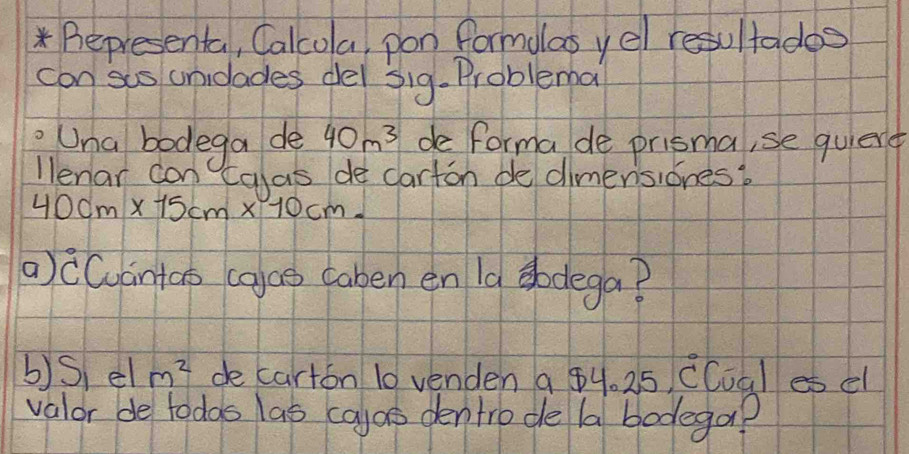 * Representa, Calcula, pon formulas y el resultados
con sus unidades del sig. Problema
° Una bodega de 40m³ de forma de prisma, se quiere
llenar con cajas de cartón de dimensiónes:
40cm x 15cm x 10cm.
a) ¿Cuántas cajas caben en la bodega?
b) Si el m² de cartón lo venden a $4.25, ¿Cúal es el
valor de todas las cajas dentro de la bodega?